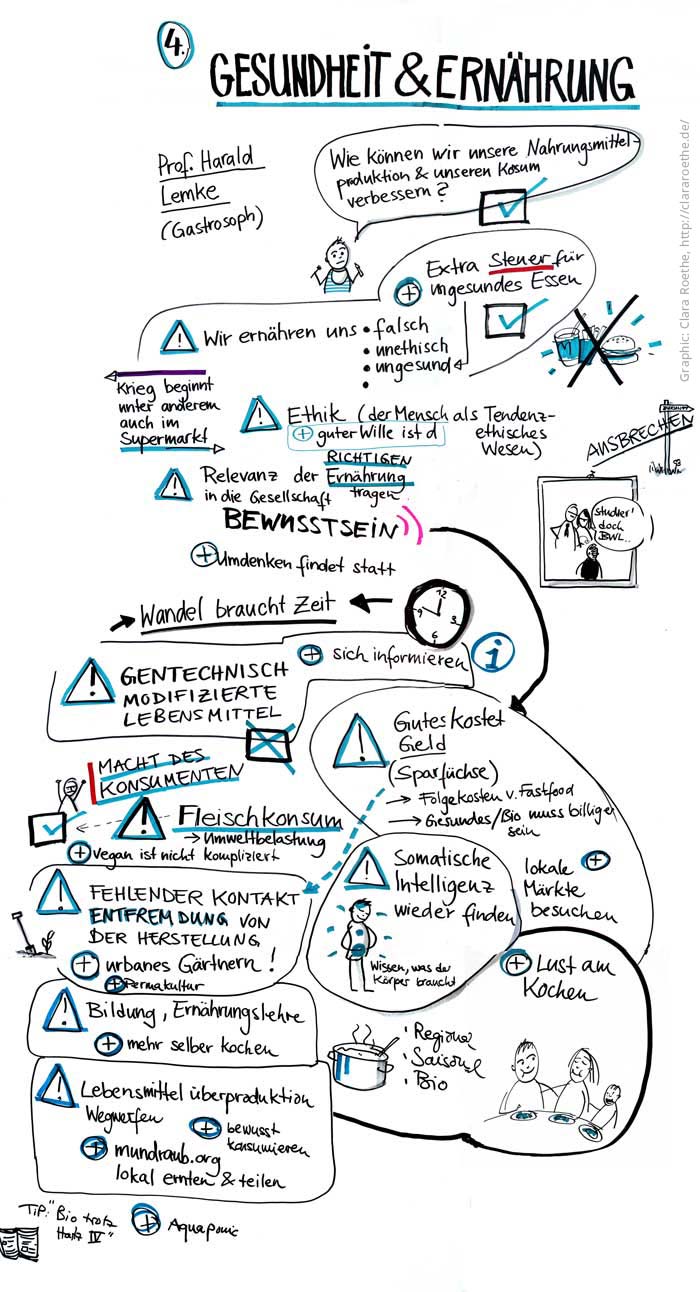 4.
GESUNDHEIT & ERNÄHRUNG
Prof. Harald
Lemke
(Gastrosoph)
Wie können wir unsere Nahrungsmittel-
produktion & unseren Kosum
verbessern?
Extra Steuer für
ungesundes Essen
Wir ernähren uns • falsch
• unethisch
• ungesund
•
Krieg beginnt
unter anderem
auch im
Supermarkt
Ethik (der Mensch als Tendenz-
ethisches
Wesen)
+ guter Wille ist d
RICHTIGEN
Relevanz der Ernährung
in die Gesellschaft tragen
AUSBRECHEN
Studier'
doch
BWL..
BEWUSSTSEIN
+ Umdenken findet statt
→ Wandel braucht Zeit
12
9 3
6
+ sich informieren
i
GENTECHNISCH
MODIFIZIERTE
LEBENSMITTEL
Gutes kostet
Geld
(Sparfüchse)
→ Folgekosten v. Fastfood
→ Gesundes/Bio muss billiger
sein
MACHT DES
KONSUMENTEN
Fleischkonsum
→ Umweltbelastung
+ Vegan ist nicht kompliziert
Somatische
Intelligenz
wieder finden
Wissen, was der
Körper braucht
lokale +
Märkte
besuchen
FEHLENDER KONTAKT
ENTFREMDUNG VON
DER HERSTELLUNG
+ urbanes Gärtnern!
+ Permakultur
+ Lust am
Kochen
Bildung, Ernährungslehre
+ mehr selber kochen
• Regional
• Saisonal
• Bio
Lebensmittel überproduktion
Wegwerfen
+ bewusst
konsumieren
+ mundraub.org
lokal ernten & teilen
TiP: "Bio trotz
Hartz IV"
+ Aquaponic
Graphic: Clara Roethe, http://clararoethe.de/